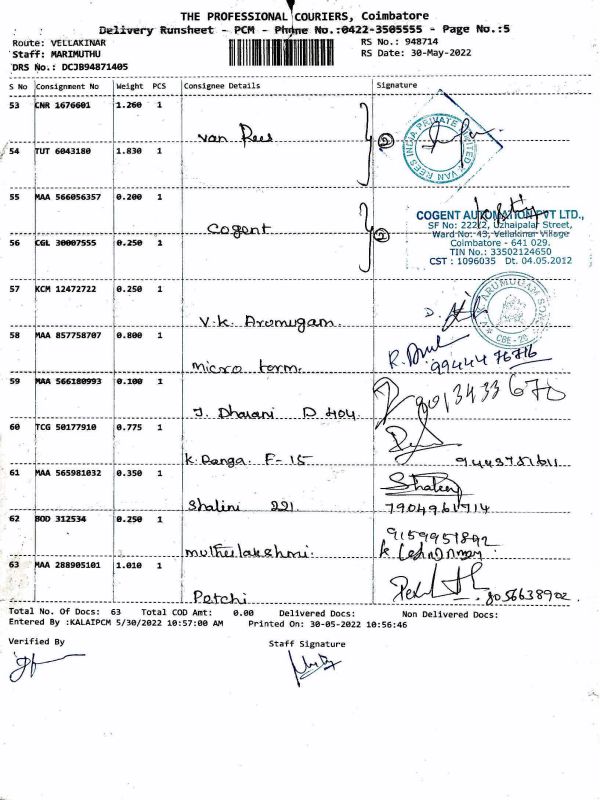 THE PROFESSIONAL COURIERS, Coimbatore
Delivery Runsheet - PCM - Phone No.:0422-3505555 - Page No.:5
Route: VELLAKINAR
RS No.: 948714
Staff: MARIMUTHU
RS Date: 30-May-2022
DRS No.: DCJB94871405
S No Consignment No Weight PCS Consignee Details Signature
53 CNR 1676601 1.260 1
Van Rees 2
VAN REES INDIA PRIVATE LIMITED
54 TUT 6043180 1.830 1
55 MAA 566056357 0.200 1
Cogent 2
COGENT AUTOMATION PVT LTD.,
SF No: 222/2, Uzhaipalar Street,
Ward No: 43, Vellakinar Village
Coimbatore - 641 029.
TIN No.: 33502124650
CST : 1096035 Dt. 04.05.2012
56 CGL 30007555 0.250 1
57 KCM 12472722 0.250 1
V.K. Arumugam.
V.K. ARUMUGAM SONS
CBE-29
58 MAA 857758707 0.800 1
micro term.
99444 76716
59 MAA 566180993 0.100 1
J. Dharani D 404.
9013433670
60 TCG 50177910 0.775 1
K. Ranga. F-15
9443781611
61 MAA 565981032 0.350 1
Shalini 221.
7904961714
62 BOD 312534 0.250 1
muthulakshmi.
9159951892
63 MAA 288905101 1.010 1
Petchi
8056638902.
Total No. Of Docs: 63 Total COD Amt: 0.00 Delivered Docs: Non Delivered Docs:
Entered By :KALAIPCM 5/30/2022 10:57:00 AM Printed On: 30-05-2022 10:56:46
Verified By Staff Signature